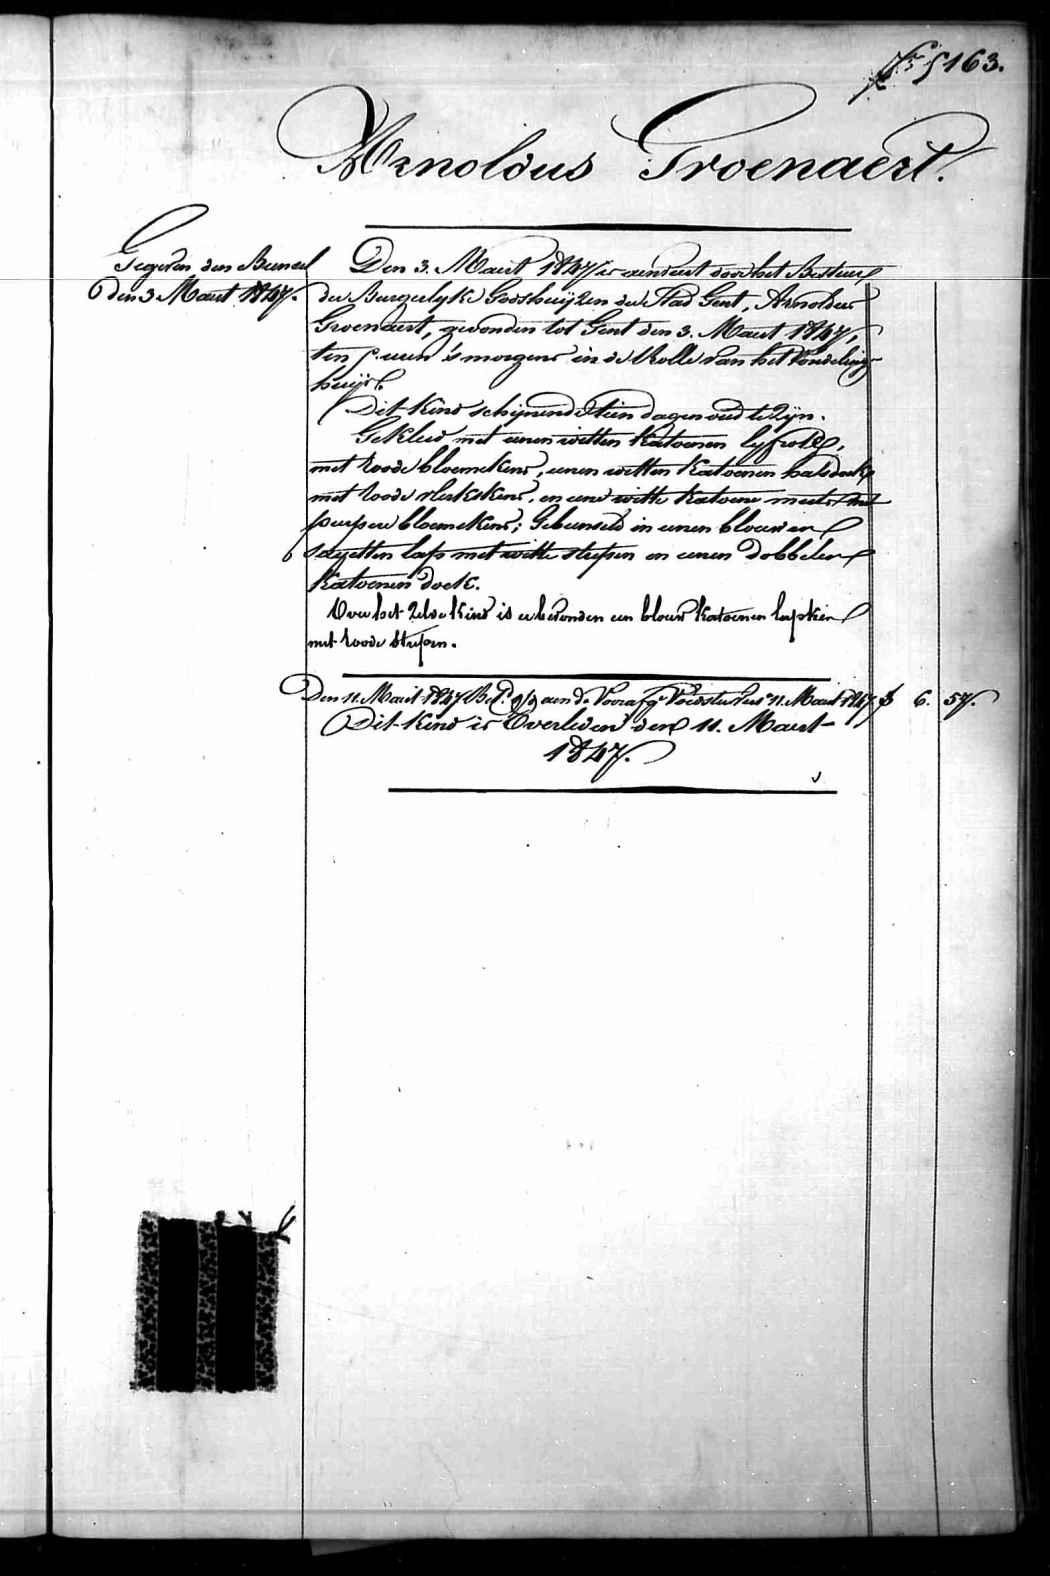 N.º 5163.
Arnoldus Groenaert.
Gegeven den Bunsel
den 3 Maart 1847.
Den 3. Maart 1847 is aenveert door het Bestuer
der Burgerlyke Godshuijzen der Stad Gent, Arnoldus
Groenaert, gevonden tot Gent den 3. Maart 1847,
ten 5 uren 's morgens in de Rolle van het Vondeling-
huijs.
Dit Kind schijnende tien dagen oud te Zyn.
Gekleed met eenen witten Katoenen lyfrok,
met roode bloemekens, eenen witten Katoenen halsdoek
met roode vlekskens, en eene witte Katoene muts met
purpere bloemekens; Gebunseld in eenen blouwen
sayetten lap met witte strepen en eenen dobbelen
Katoenen doek.
Over het Zelve kind is er bevonden een blouw Katoenen lapken
met roode strepen.
Den 11. Maart 1847 Bet. aen de Voorafg. Voedster tot 11. Maart 1847 f 6. 57.
Dit Kind is Overleden den 11. Maart
1847.